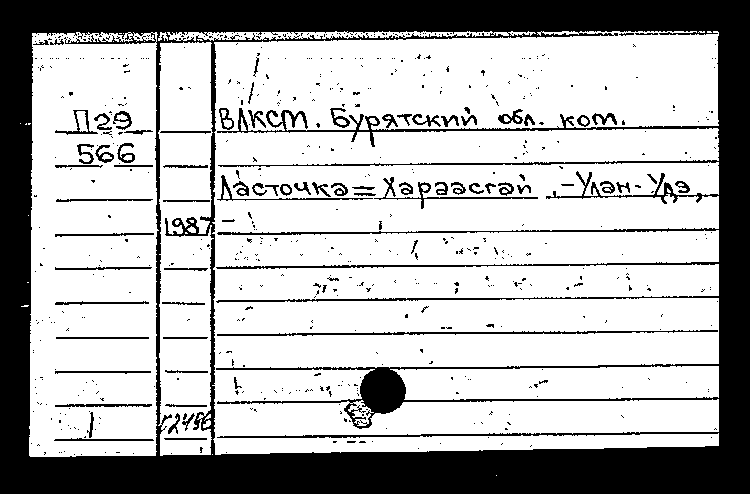 П29 ВЛКСМ. Бурятский обл. ком.
566
Ласточка = Хараасгай .-Улан-Удэ,
1987 -
1